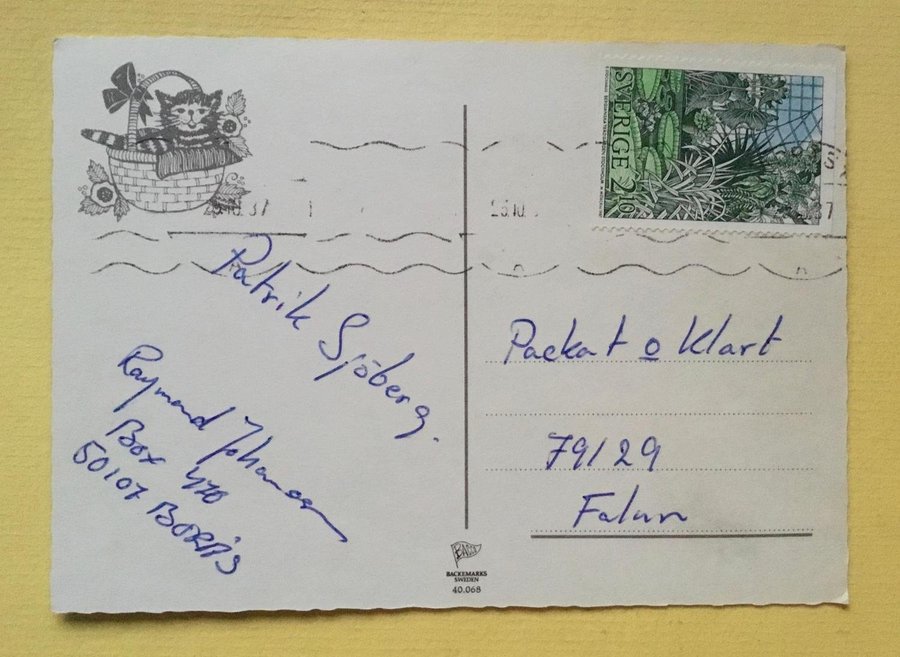 SVERIGE 2.10
Patrik Sjöberg.
Raymond Johansson
Box 470
50107 BORÅS
Packat o Klart
79129
Falun
BACKEMARKS
SWEDEN
40.068